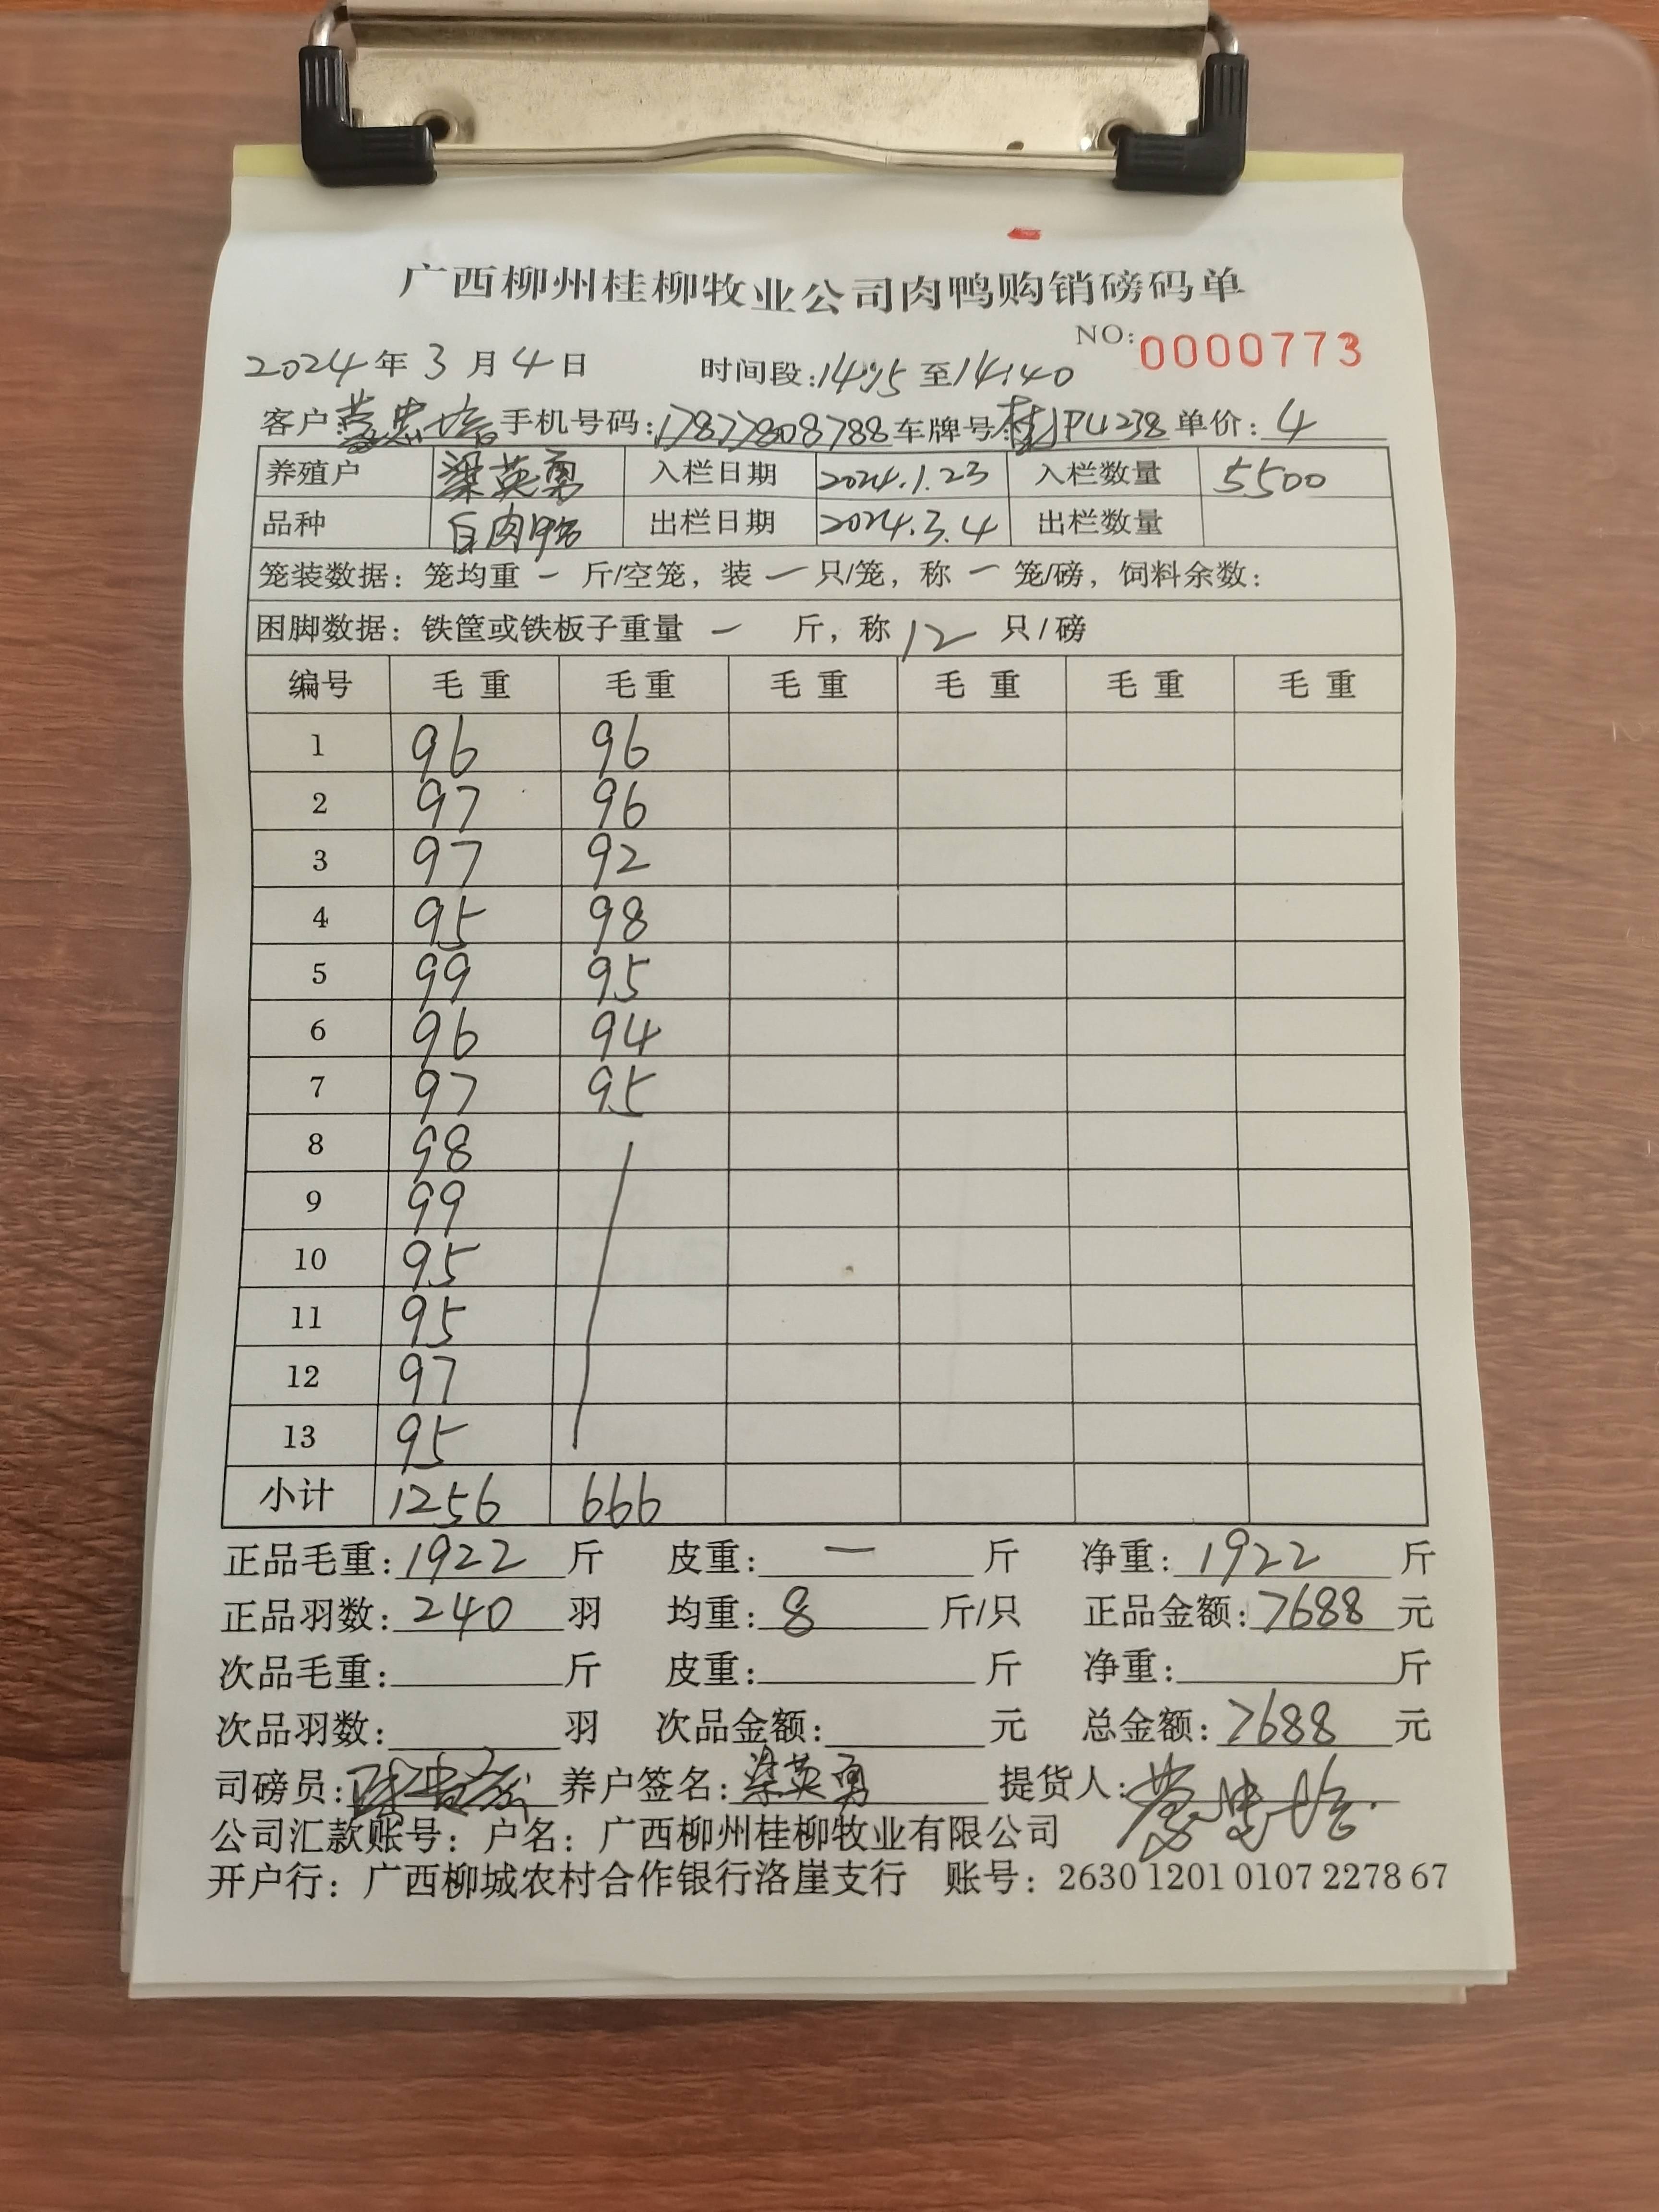 广西柳州桂柳牧业公司肉鸭购销磅码单
NO: 0000773
2024年3月4日 时间段:14:15至14:40
客户 手机号码:17877808788 车牌号:桂JPU238 单价:4
养殖户 梁英勇 入栏日期 2024.1.23 入栏数量 5500
品种 白肉鸭 出栏日期 2024.3.4 出栏数量
笼装数据:笼均重 一 斤/空笼,装 一 只/笼,称 一 笼/磅,饲料余数:
困脚数据:铁筐或铁板子重量 一 斤,称 12 只/磅
编号 毛重 毛重 毛重 毛重 毛重 毛重
1 96 96
2 97 96
3 97 92
4 95 98
5 99 95
6 96 94
7 97 95
8 98
9 99
10 95
11 95
12 97
13 95
小计 1256 666
正品毛重:1922 斤 皮重:一 斤 净重:1922 斤
正品羽数:240 羽 均重:8 斤/只 正品金额:7688 元
次品毛重: 斤 皮重: 斤 净重: 斤
次品羽数: 羽 次品金额: 元 总金额:7688 元
司磅员: 养户签名:梁英勇 提货人:
公司汇款账号:户名:广西柳州桂柳牧业有限公司
开户行:广西柳城农村合作银行洛崖支行 账号:2630 1201 0107 2278 67